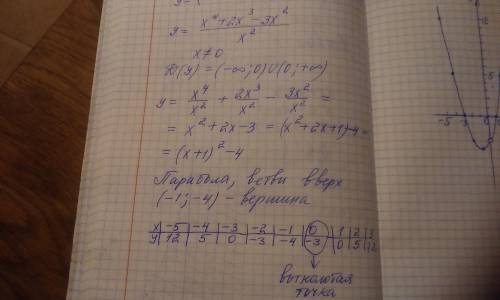 y =
y = (x⁴+2x³-3x²)/x²
x≠0
D(y) = (-∞; 0)∪(0; +∞)
y = x⁴/x² + 2x³/x² - 3x²/x² =
= x²+2x-3 = (x²+2x+1)-4 =
= (x+1)²-4
Парабола, ветви вверх
(-1; -4) - вершина
x | -5 | -4 | -3 | -2 | -1 | 0 | 1 | 2 | 3
y | 12 | 5 | 0 | -3 | -4 | -3 | 0 | 5 | 12
выколотая
точка
-5 -3 0